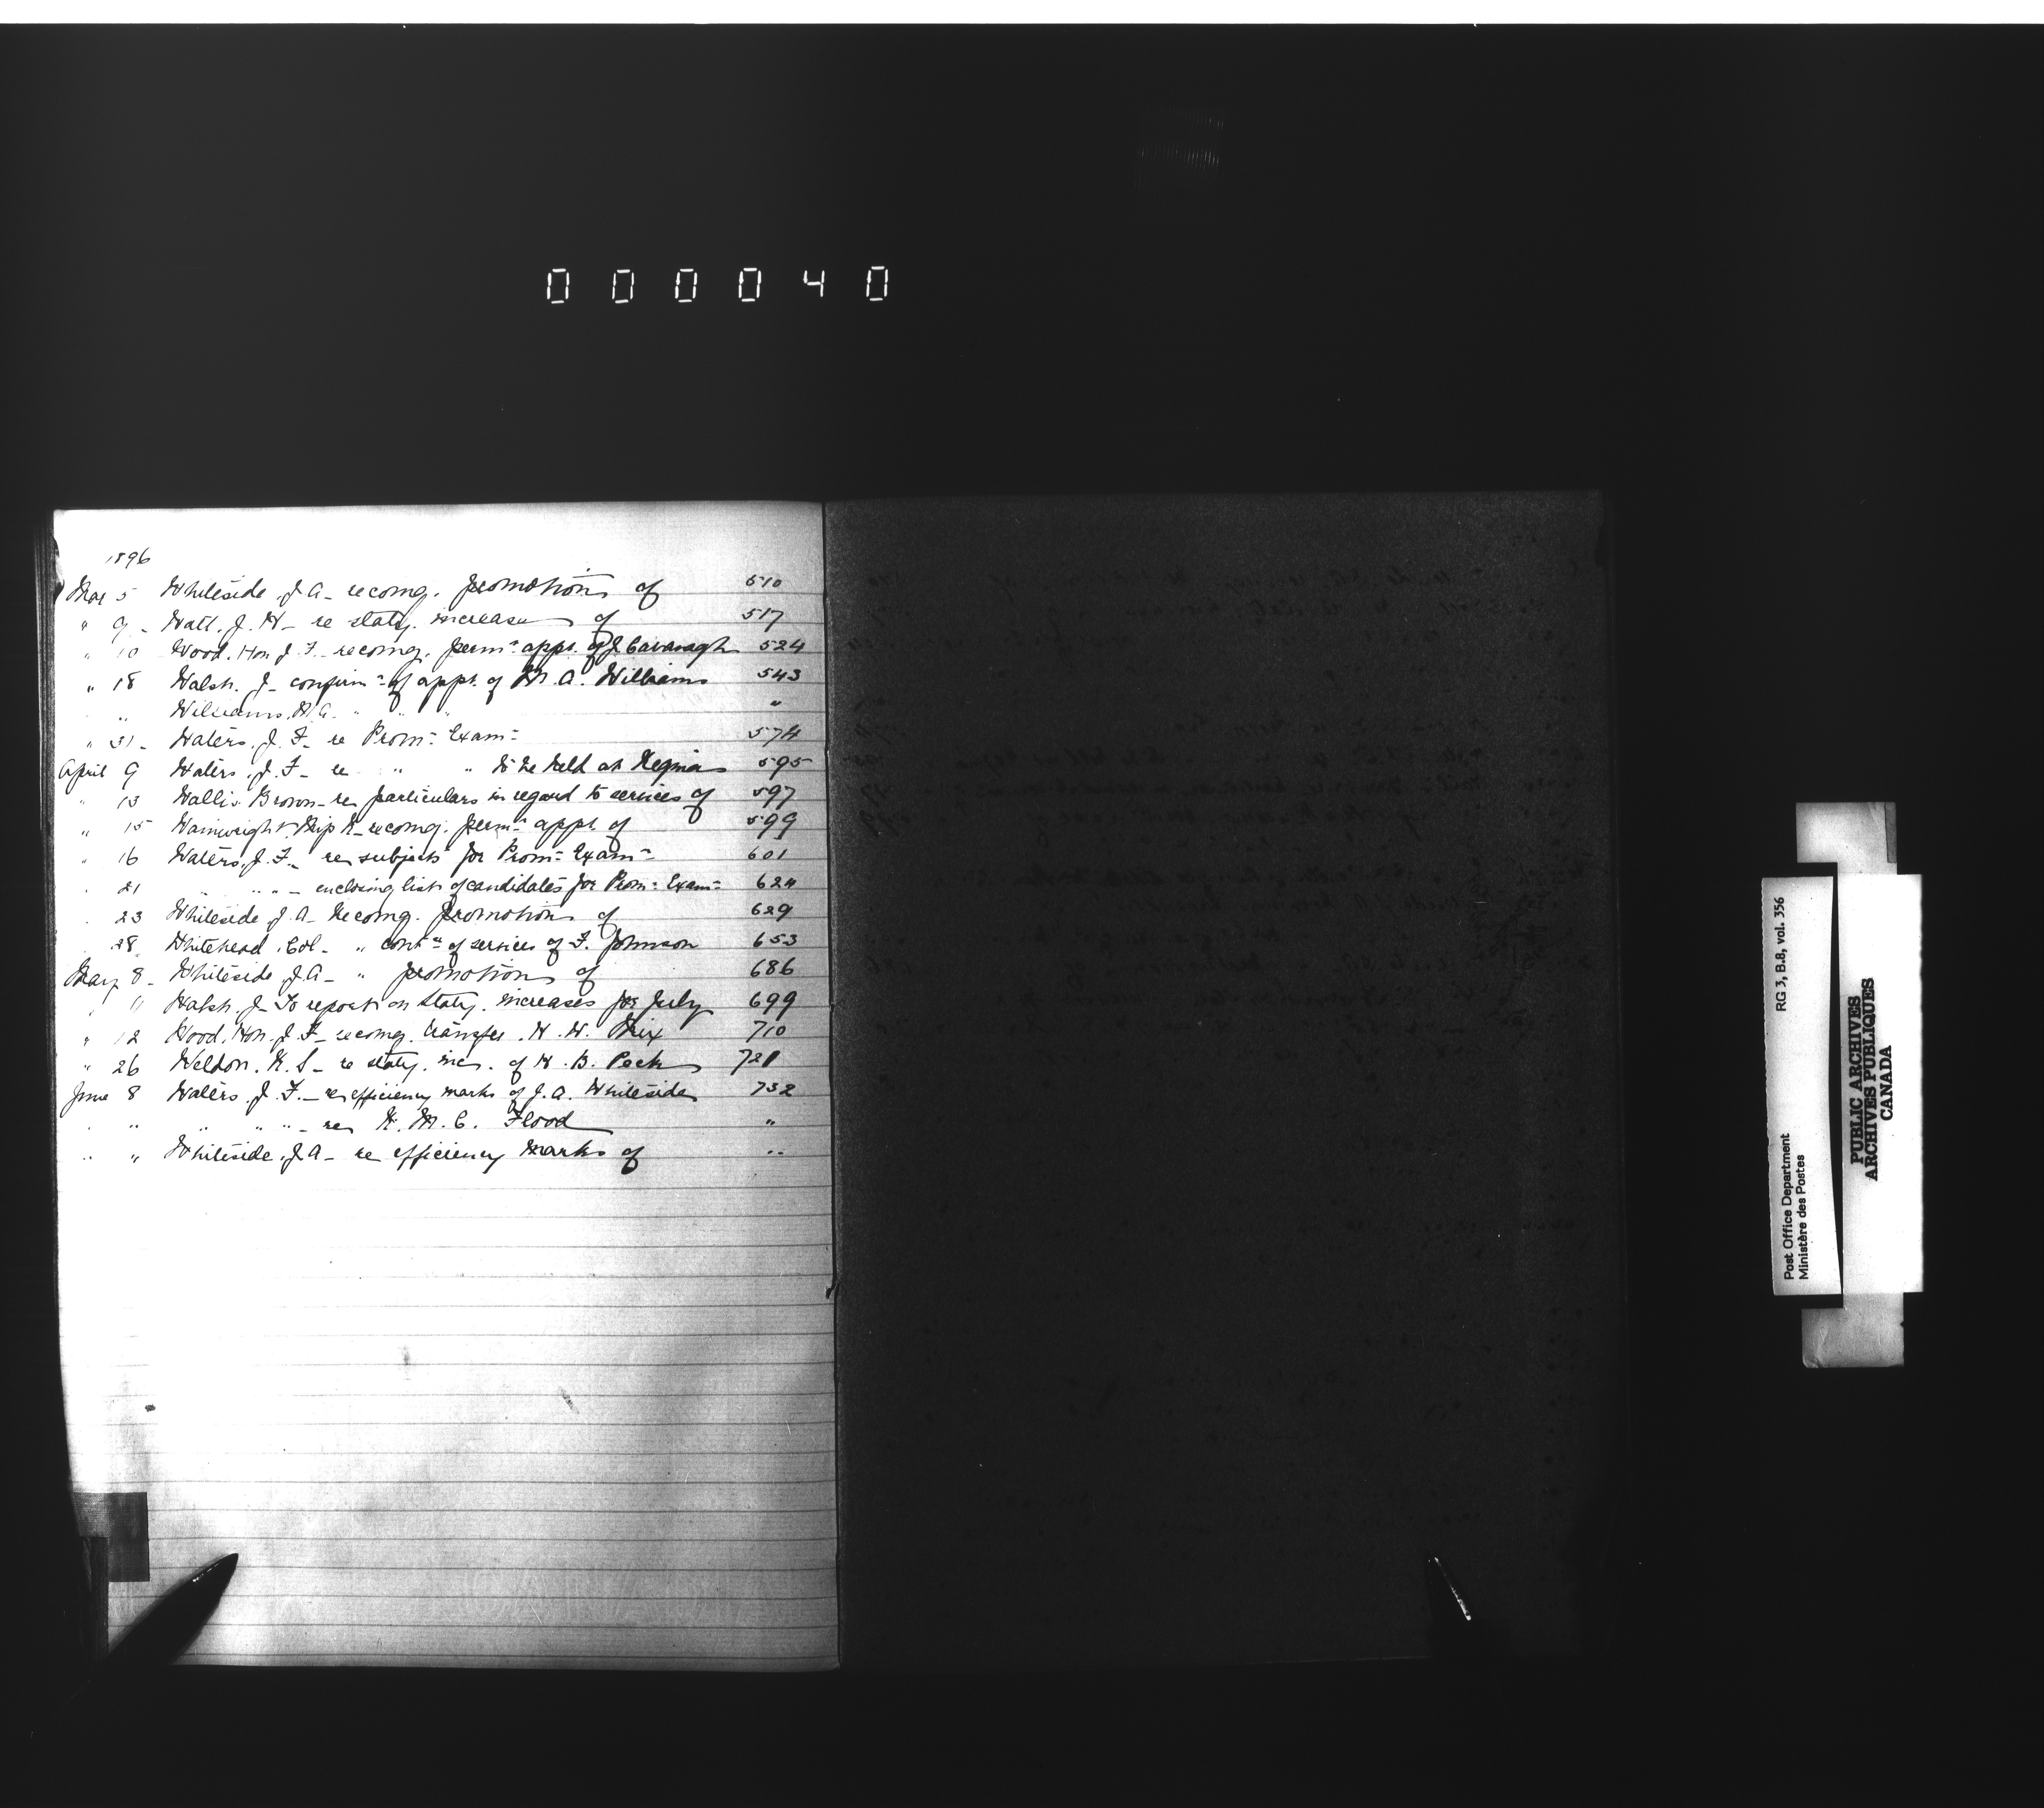 000040
1896
Mar 5 Whiteside, J. A - recomg. promotion of 510
" 9 - Watt. J. H - re staty. increase of 517
" 10 Wood. Hon J. F. - recomg. perm:t appt. of J. Cavanagh 524
" 18 Walsh. J - confirm:n of appt. of M. A. Williams 543
" Williams, M. A. " " " "
" 31 - Waters, J. F. - re Prom:n Exam:n 574
April 9 Waters, J. F - re " " to be held at Regina 595
" 13 Wallis Brown - re particulars in regard to services of 597
" 15 Wainwright, Miss - recomg. perm:t appt. of 599
" 16 Waters, J. F. - re subjects for Prom:n Exam:n 601
" 21 " " " - enclosing list of candidates for Prom:n Exam:n 624
" 23 Whiteside J. A - recomg. promotion of 629
" 28 Whitehead, Col - " cont:ce of services of F. Johnson 653
May 8 - Whiteside, J. A - " promotion of 686
" 11 Walsh. J - To report on staty. increases for July 699
" 12 Wood, Hon. J. F - recomg. transfer. H. W. 710
" 26 Weldon. - re staty. inc. of H. B. Peck 721
June 8 Waters. J. F. - re efficiency marks of J. A. Whiteside 732
" " " " " - re M. C. Flood "
" " Whiteside, J. A - re efficiency marks of "
Post Office Department RG 3, B.8, vol. 356
Ministère des Postes
PUBLIC ARCHIVES
ARCHIVES PUBLIQUES
CANADA